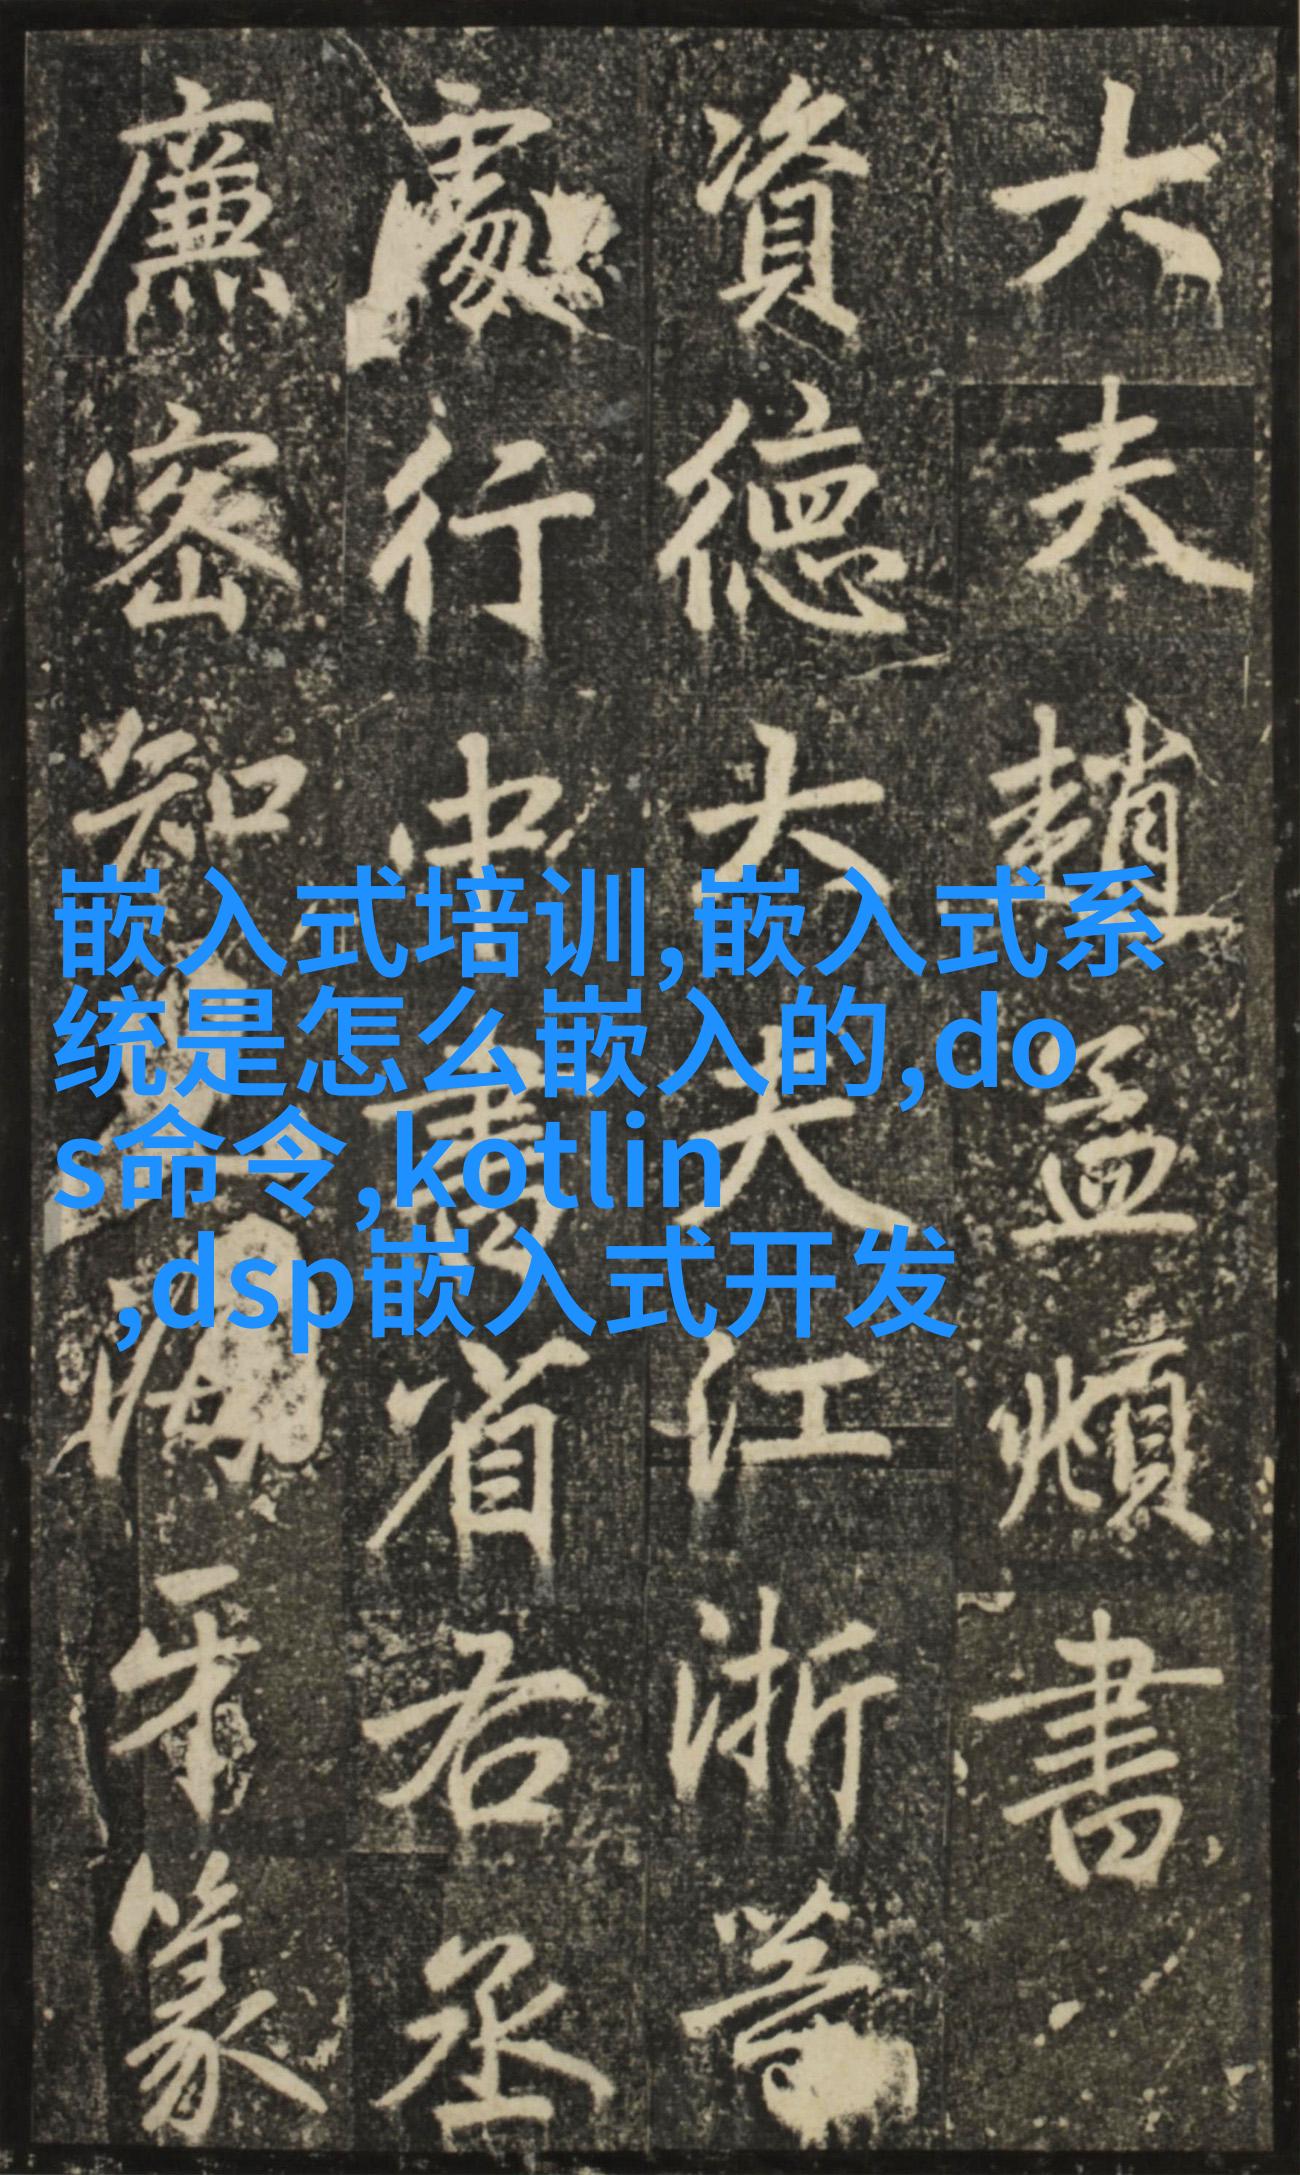 大夫趙孟頫書
資德大夫江浙等
處行中書省右丞
廉密知海牙篆
嵌入式培训,嵌入式系
统是怎么嵌入的,do
s命令,kotlin
,dsp嵌入式开发